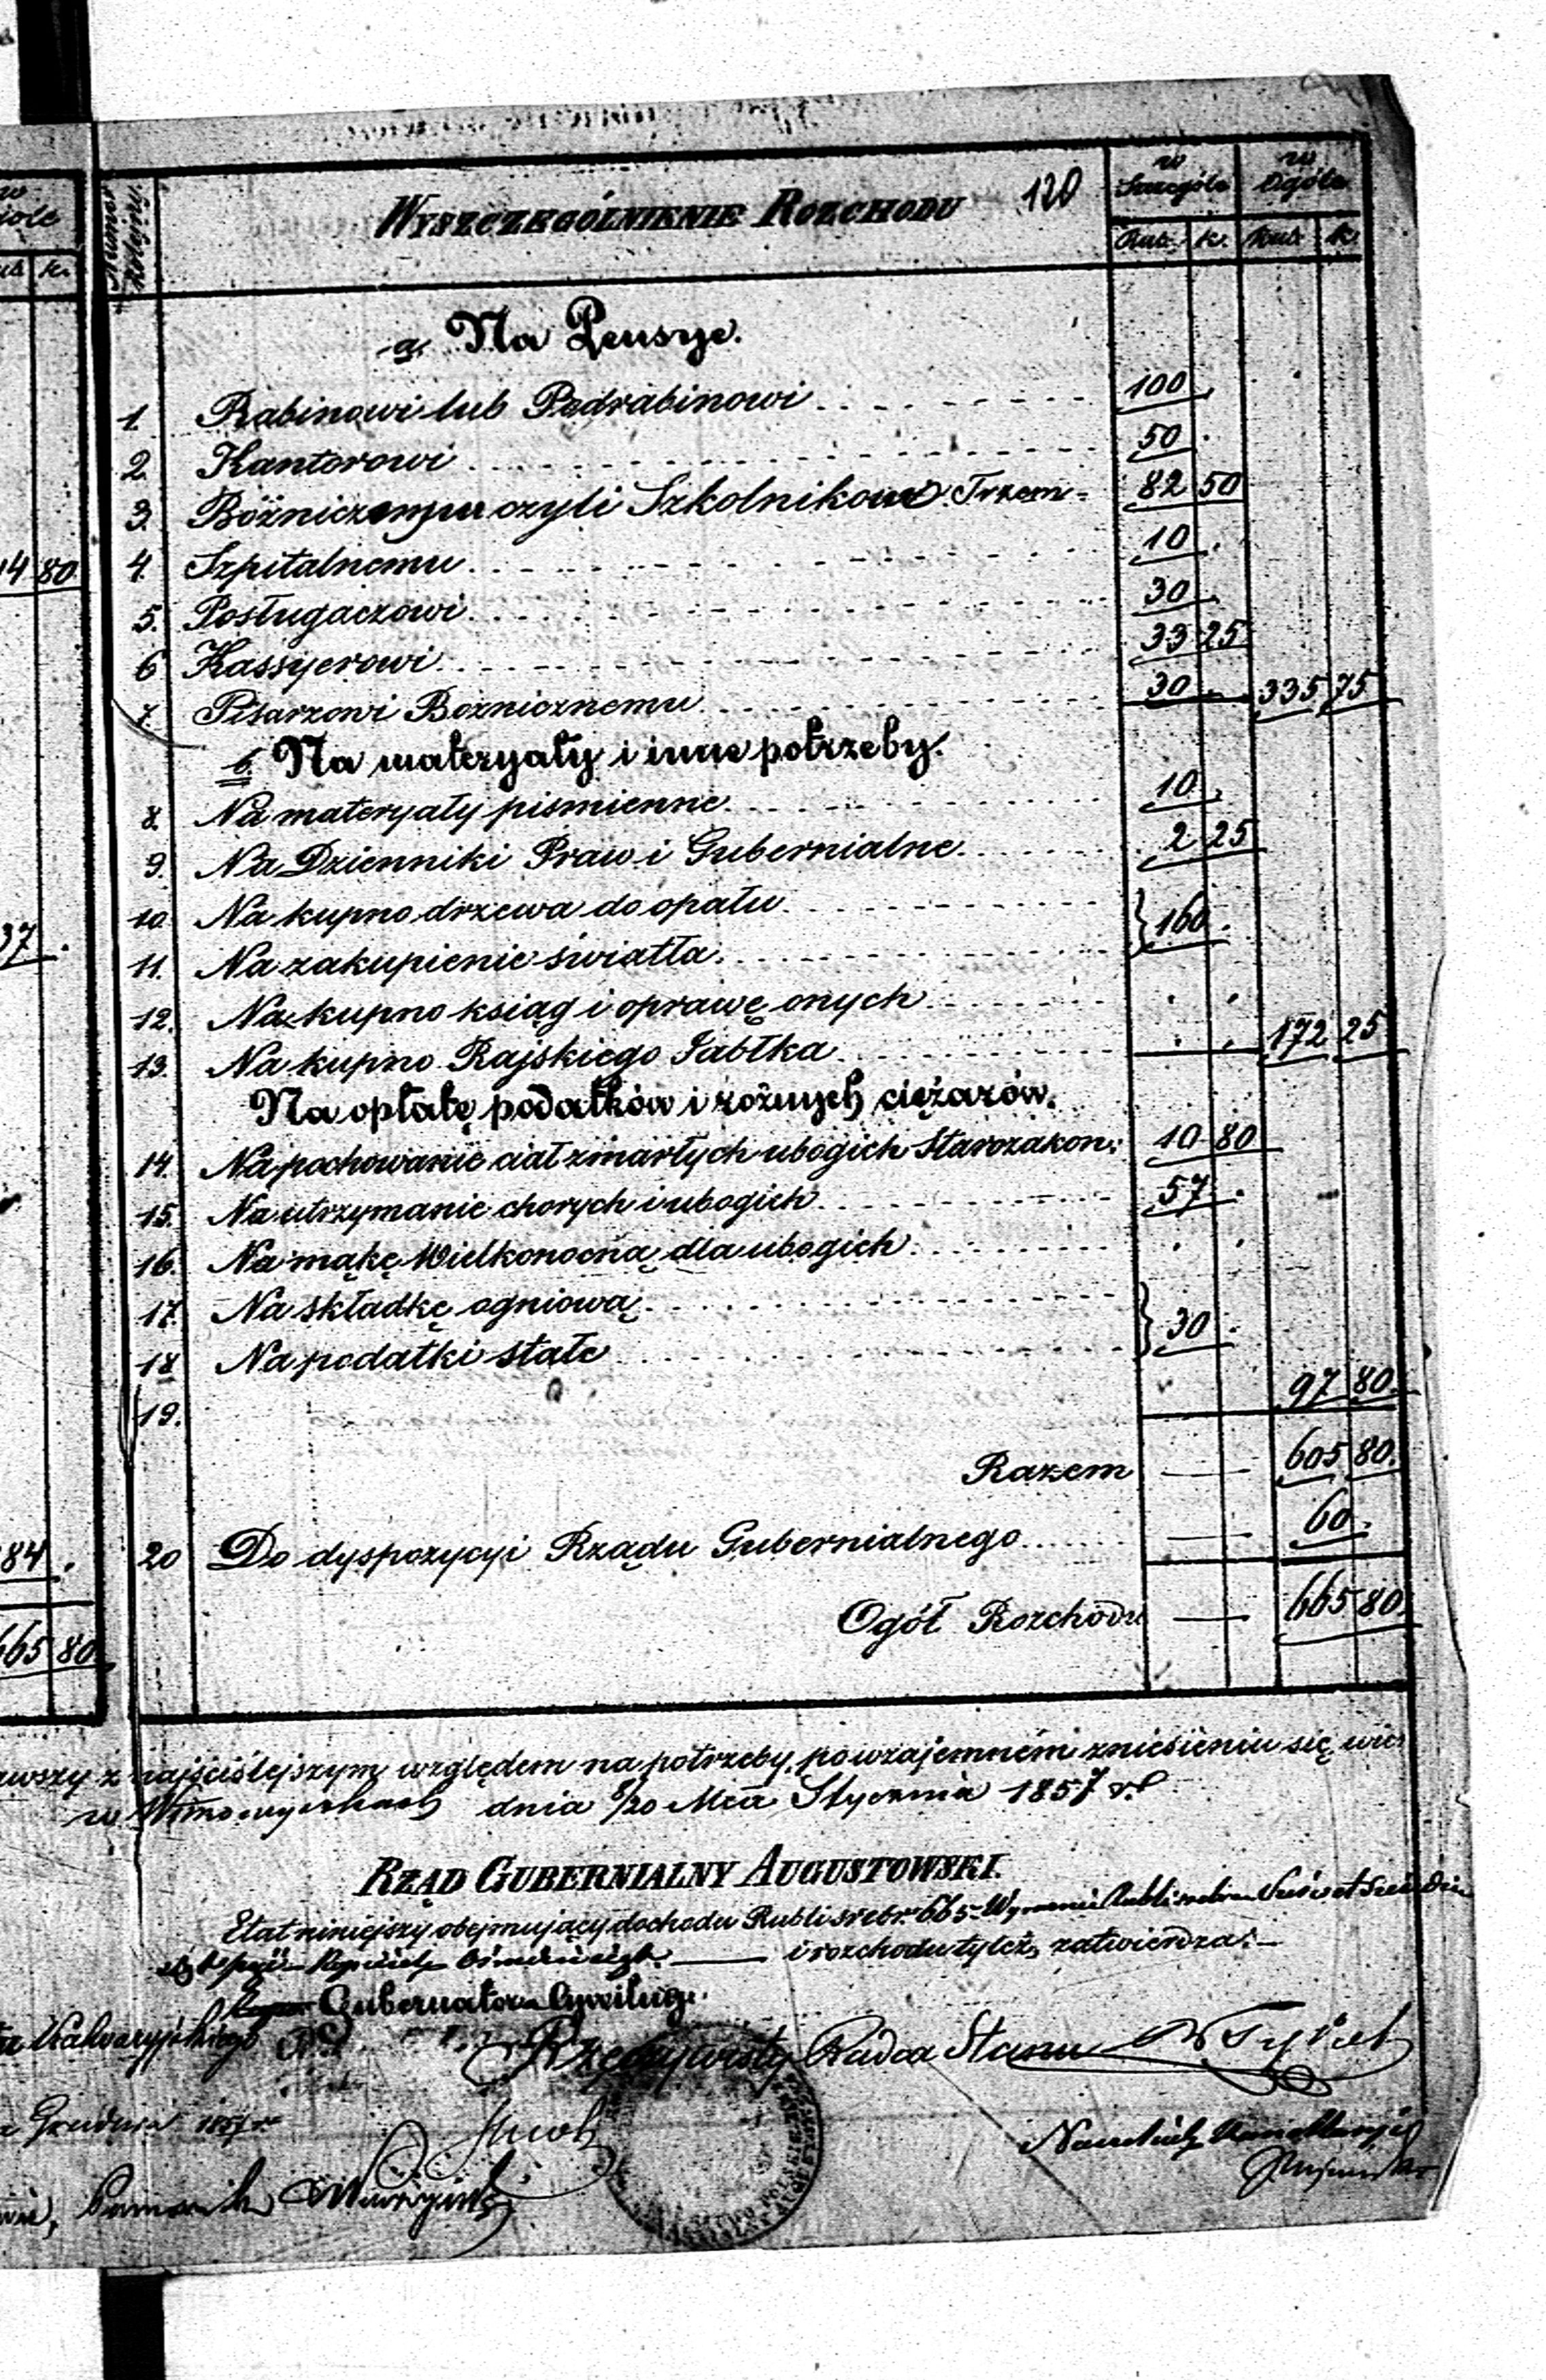 w Szczególe
w Ogóle
Numer kolejny
WYSZCZEGÓLNIENIE ROZCHODU 120
Rub. k. Rub. k.
a. Na Pensye.
1. Rabinowi lub Podrabinowi 100 .
2. Kantorowi 50 .
3. Bóżniczemu czyli Szkolnikom Trzem 82 50
4. Szpitalnemu 10 .
5. Posługaczowi 30 .
6 Kassyerowi 33 25
7. Pisarzowi Boznicznemu 30 . 335 75
b. Na materyały i inne potrzeby.
8. Na materyały pismienne 10 .
9. Na Dzienniki Praw i Gubernialne 2 25
10. Na kupno drzewa do opału } 160 .
11. Na zakupienie światła
12. Na kupno ksiąg i oprawę onych . .
13. Na kupno Rajskiego Jabłka . . 172 25
Na opłatę podatków i rożnych ciężarów.
14. Na pochowanie ciał zmarłych ubogich Starozakon: 10 80
15. Na utrzymanie chorych i ubogich 57 .
16. Na mąkę Wielkonocną dla ubogich . .
17. Na składkę ogniową } 30 .
18 Na podatki stałe
97 80.
19.
Razem — 605 80.
20 Do dyspozycyi Rządu Gubernialnego — 60 .
Ogół Rozchodu — 665 80.
14 80
37 .
84 .
665 80
najściślejszym względem na potrzeby, po wzajemnem zniesieniu się
dnia 8/20 Mca Stycznia 1857 r.
RZĄD GUBERNIALNY AUGUSTOWSKI.
Etat niniejszy obejmujący dochodu Rubli srebr. 665
i rozchodu tyleż, zatwierdza:
Gubernator Cywilny
Kalwaryjskiego
Rzeczywisty Radca Stanu
Grudnia 1857 r.
Naczelnik Kancellaryi